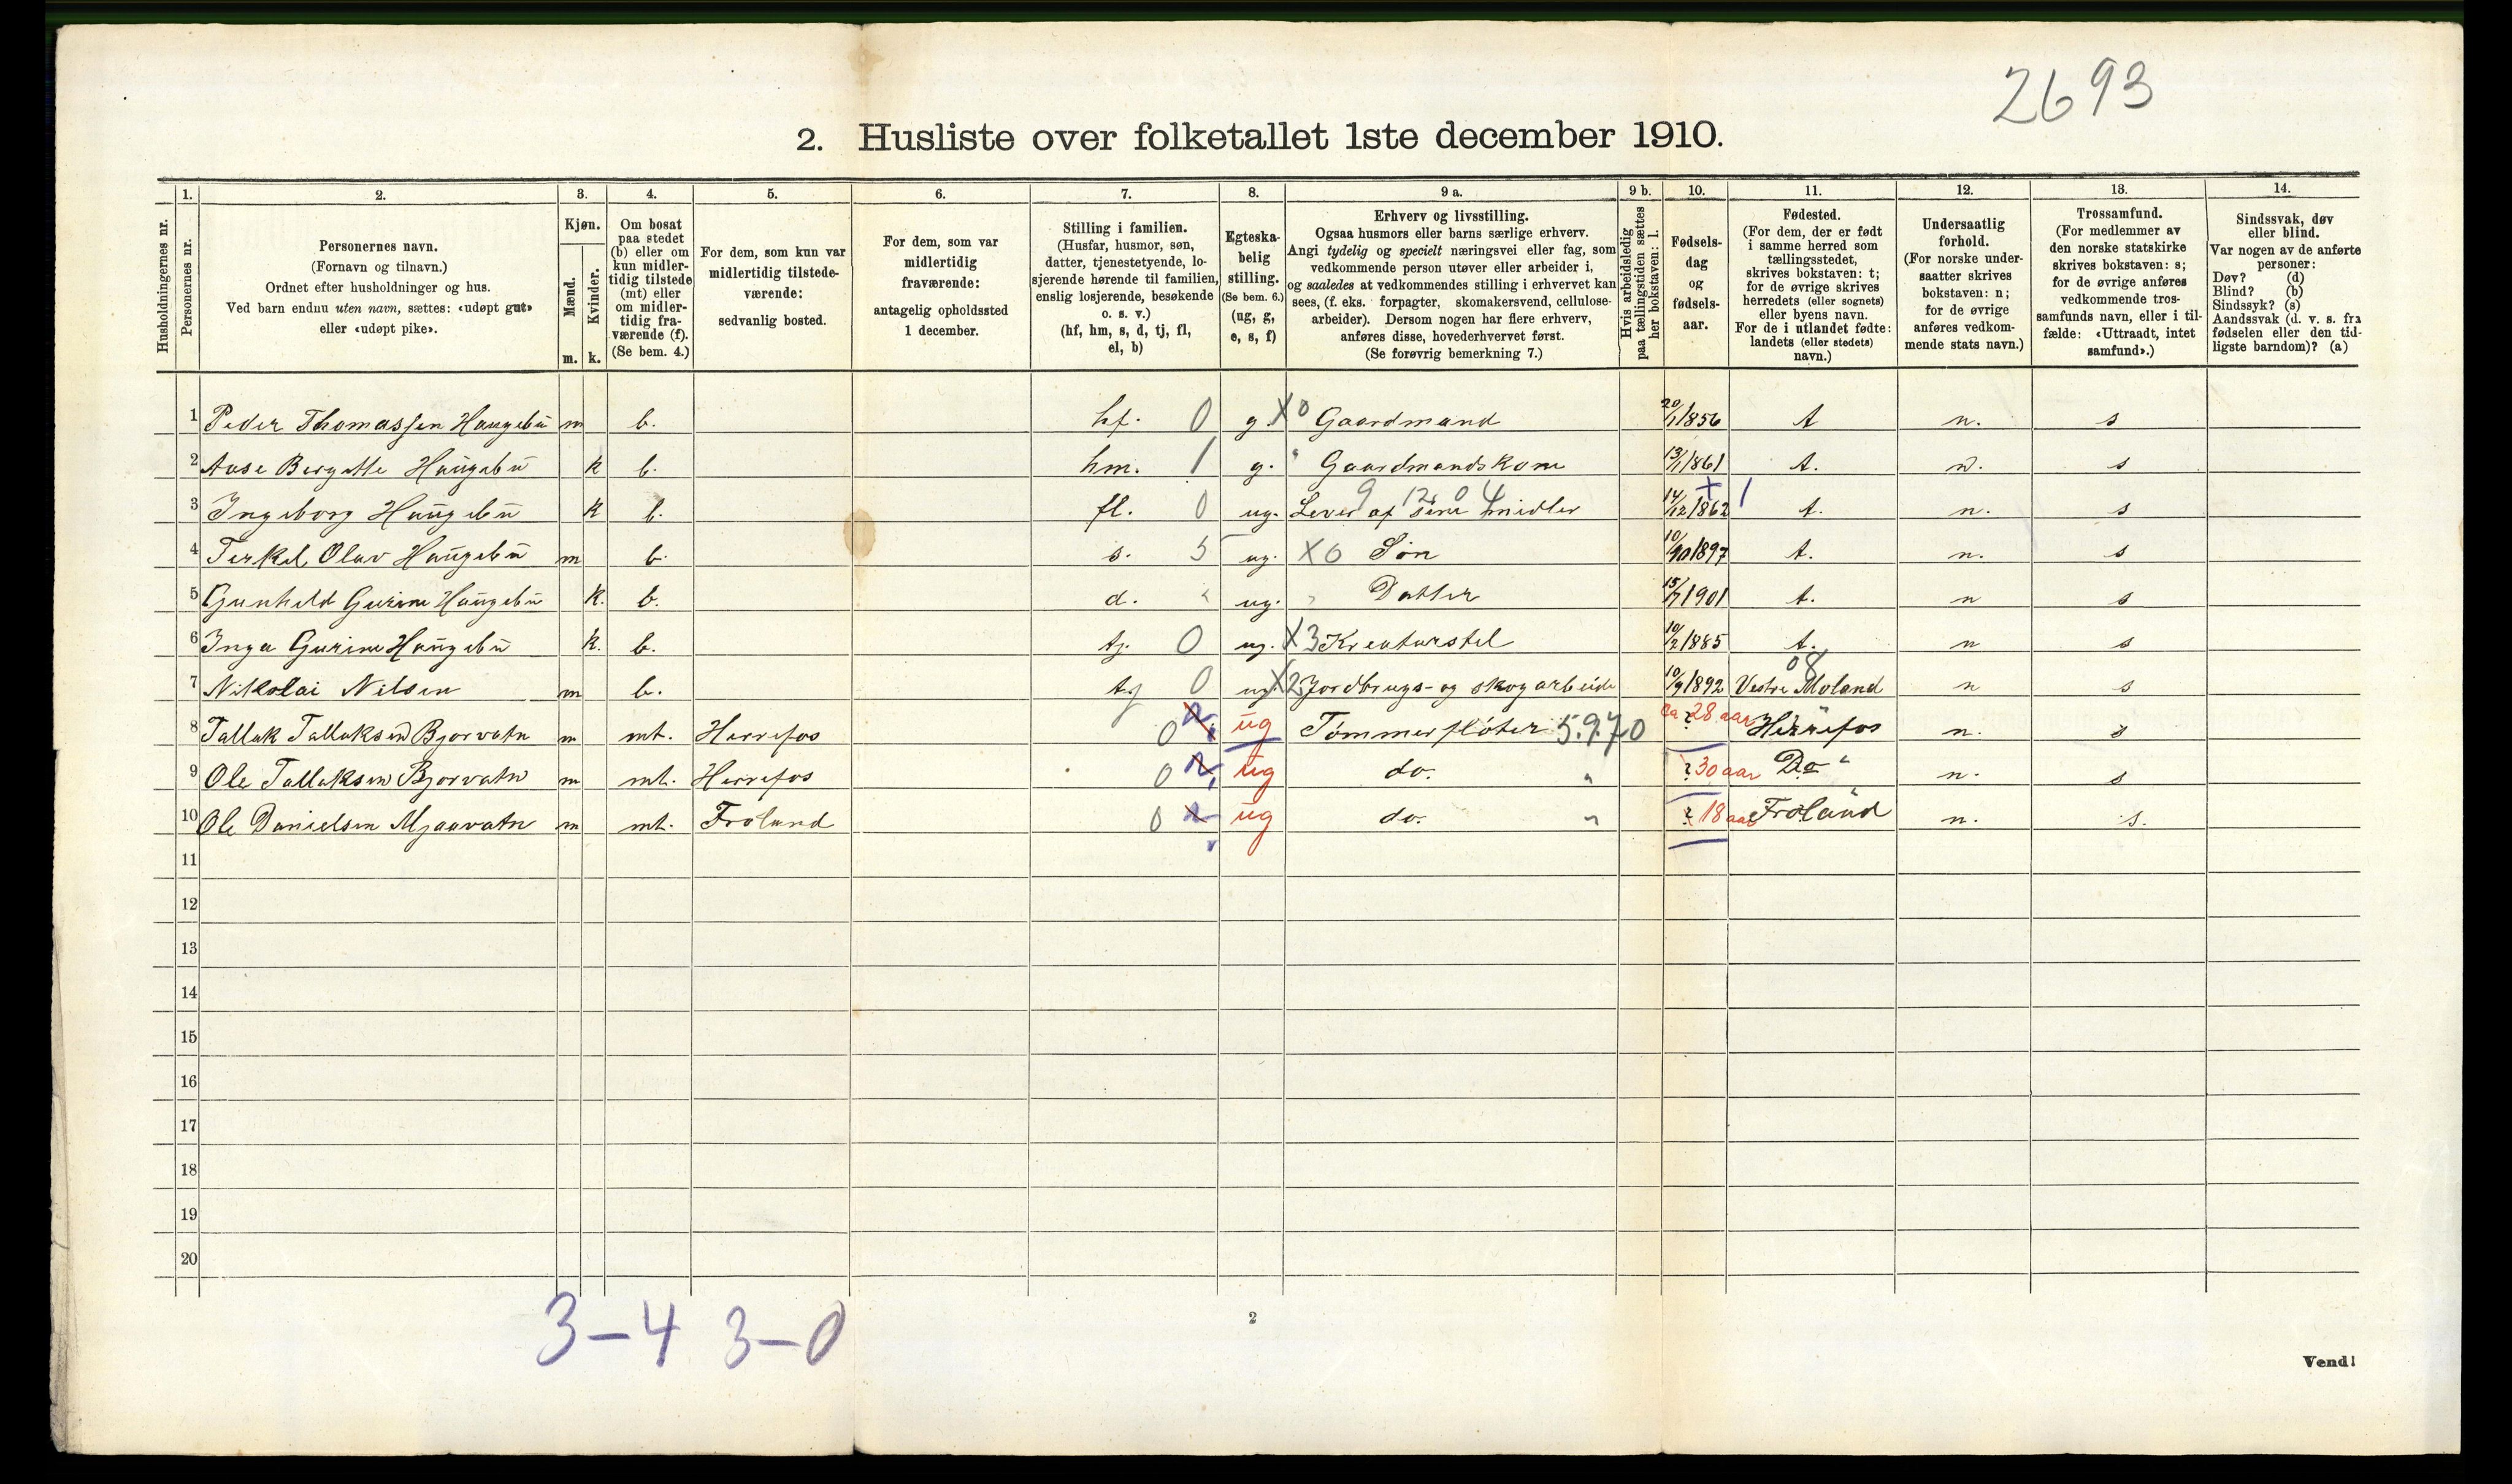 2693
2. Husliste over folketallet 1ste december 1910.
Husholdningernes nr.
1.
Personernes nr.
2.
Personernes navn.
(Fornavn og tilnavn.)
Ordnet efter husholdninger og hus.
Ved barn endnu uten navn, sættes: «udøpt gut»
eller «udøpt pike».
3.
Kjøn.
Mænd.
Kvinder.
m. k.
4.
Om bosat
paa stedet
(b) eller om
kun midler-
tidig tilstede
(mt) eller
om midler-
tidig fra-
værende (f).
(Se bem. 4.)
5.
For dem, som kun var
midlertidig tilstede-
værende:
sedvanlig bosted.
6.
For dem, som var
midlertidig
fraværende:
antagelig opholdssted
1 december.
7.
Stilling i familien.
(Husfar, husmor, søn,
datter, tjenestetyende, lo-
sjerende hørende til familien,
enslig losjerende, besøkende
o. s. v.)
(hf, hm, s, d, tj, fl,
el, b)
8.
Egteska-
belig
stilling.
(Se bem. 6.)
(ug, g,
e, s, f)
9 a.
Erhverv og livsstilling.
Ogsaa husmors eller barns særlige erhverv.
Angi tydelig og specielt næringsvei eller fag, som
vedkommende person utøver eller arbeider i,
og saaledes at vedkommendes stilling i erhvervet kan
sees, (f. eks. forpagter, skomakersvend, cellulose-
arbeider). Dersom nogen har flere erhverv,
anføres disse, hovederhvervet først.
(Se forøvrig bemerkning 7.)
9 b.
Hvis arbeidsledig
paa tællingstiden sættes
her bokstaven: l.
10.
Fødsels-
dag
og
fødsels-
aar.
11.
Fødested.
(For dem, der er født
i samme herred som
tællingsstedet,
skrives bokstaven: t;
for de øvrige skrives
herredets (eller sognets)
eller byens navn.
For de i utlandet fødte:
landets (eller stedets)
navn.)
12.
Undersaatlig
forhold.
(For norske under-
saatter skrives
bokstaven: n;
for de øvrige
anføres vedkom-
mende stats navn.)
13.
Trossamfund.
(For medlemmer av
den norske statskirke
skrives bokstaven: s;
for de øvrige anføres
vedkommende tros-
samfunds navn, eller i til-
fælde: «Uttraadt, intet
samfund».)
14.
Sindssvak, døv
eller blind.
Var nogen av de anførte
personer:
Døv? (d)
Blind? (b)
Sindssyk? (s)
Aandssvak (d. v. s. fra
fødselen eller den tid-
ligste barndom)? (a)
1 Peder Thomassen Haugebu m b. hf. 0 g. X0 Gaardmand 20/1 1856 t n. s
2 Aase Bergatte Haugebu k b. hm. 1 g. " Gaardmandskone 13/1 1861 t. n. s
3 Ingeborg Haugebu k b. fl. 0 ug. Lever af sine midler 9 12 0 4 14/12 1862 + 1 t. n. s
4 Terkel Olav Haugebu m b. s. 5 ug. X0 Søn 10/10 1897 t. n. s
5 Gunhild Gurine Haugebu k. b. d. " ug. " Datter 15/7 1901 t. n s
6 Inga Gurine Haugebu k. b. tj. 0 ug. X3 Kreaturstel 10/2 1885 t. n s
7 Nikolai Nilsen m b. tj 0 ug. X2 Jordbrugs- og skogarbeide 10/9 1892 08 Vestre Moland n s
8 Tallak Tallaksen Bjorvatn m mt. Herrefos 0 ug Tømmerfløter 5.970 ca 28 aar Herrefos n. s
9 Ole Tallaksen Bjorvatn m mt. Herrefos 0 ug do. " ? 30 aar Do " n. s
10 Ole Danielsen Mjaavatn m mt. Froland 0 ug do. " ? 18 aar Froland n. s.
11
12
13
14
15
16
17
18
19
20
3-4 3-0
2
Vend!